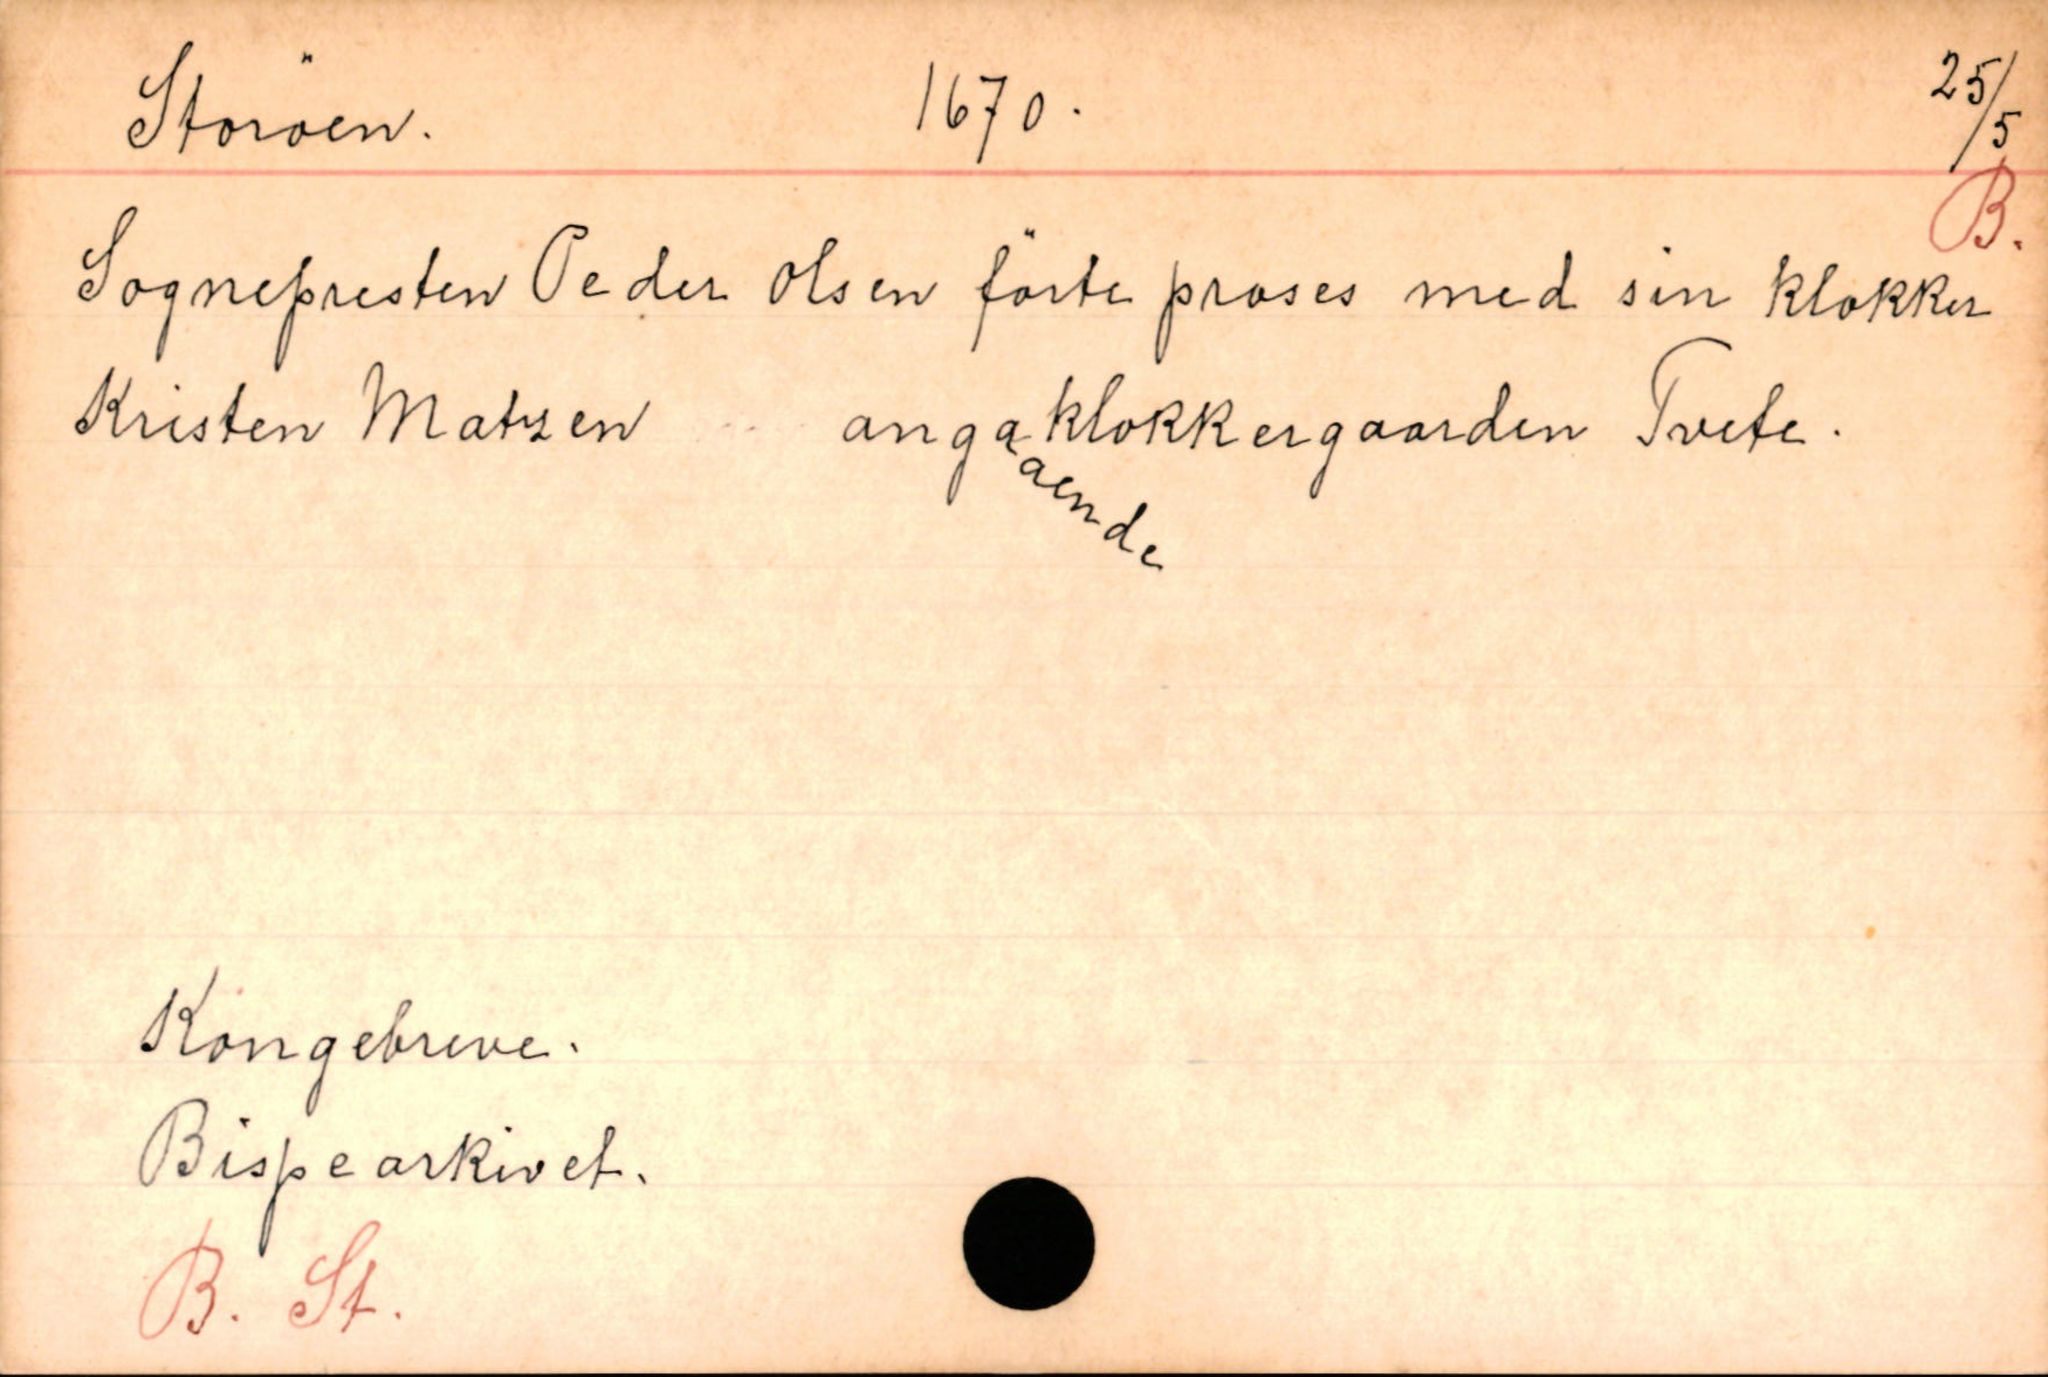 Storöen. 1670. 25/5
B.
Sognepresten Peder Olsen förte proses med sin klokker
Kristen Matzen angaaende klokkergaarden Tvete.
Kongebreve.
Bispearkivet.
B. St.